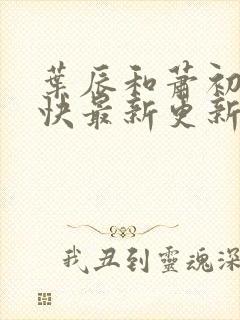 葉辰和蕭初
快最新更新
我丑到靈魂深